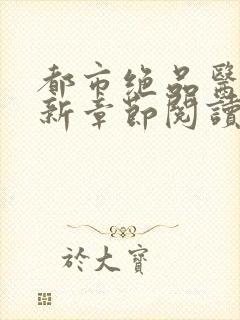 都市绝品醫
新章節閱讀
於大寶